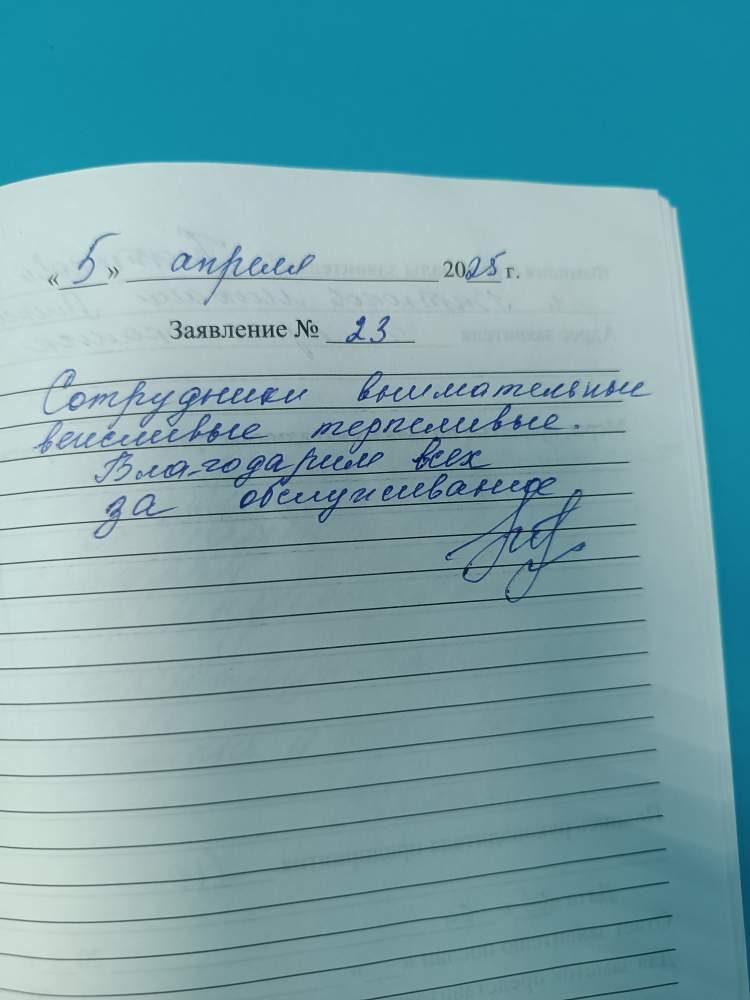 « 5 » апреля 2025 г.
Заявление № 23
Сотрудники внимательные
вежливые терпеливые.
Благодарим всех
за обслуживание